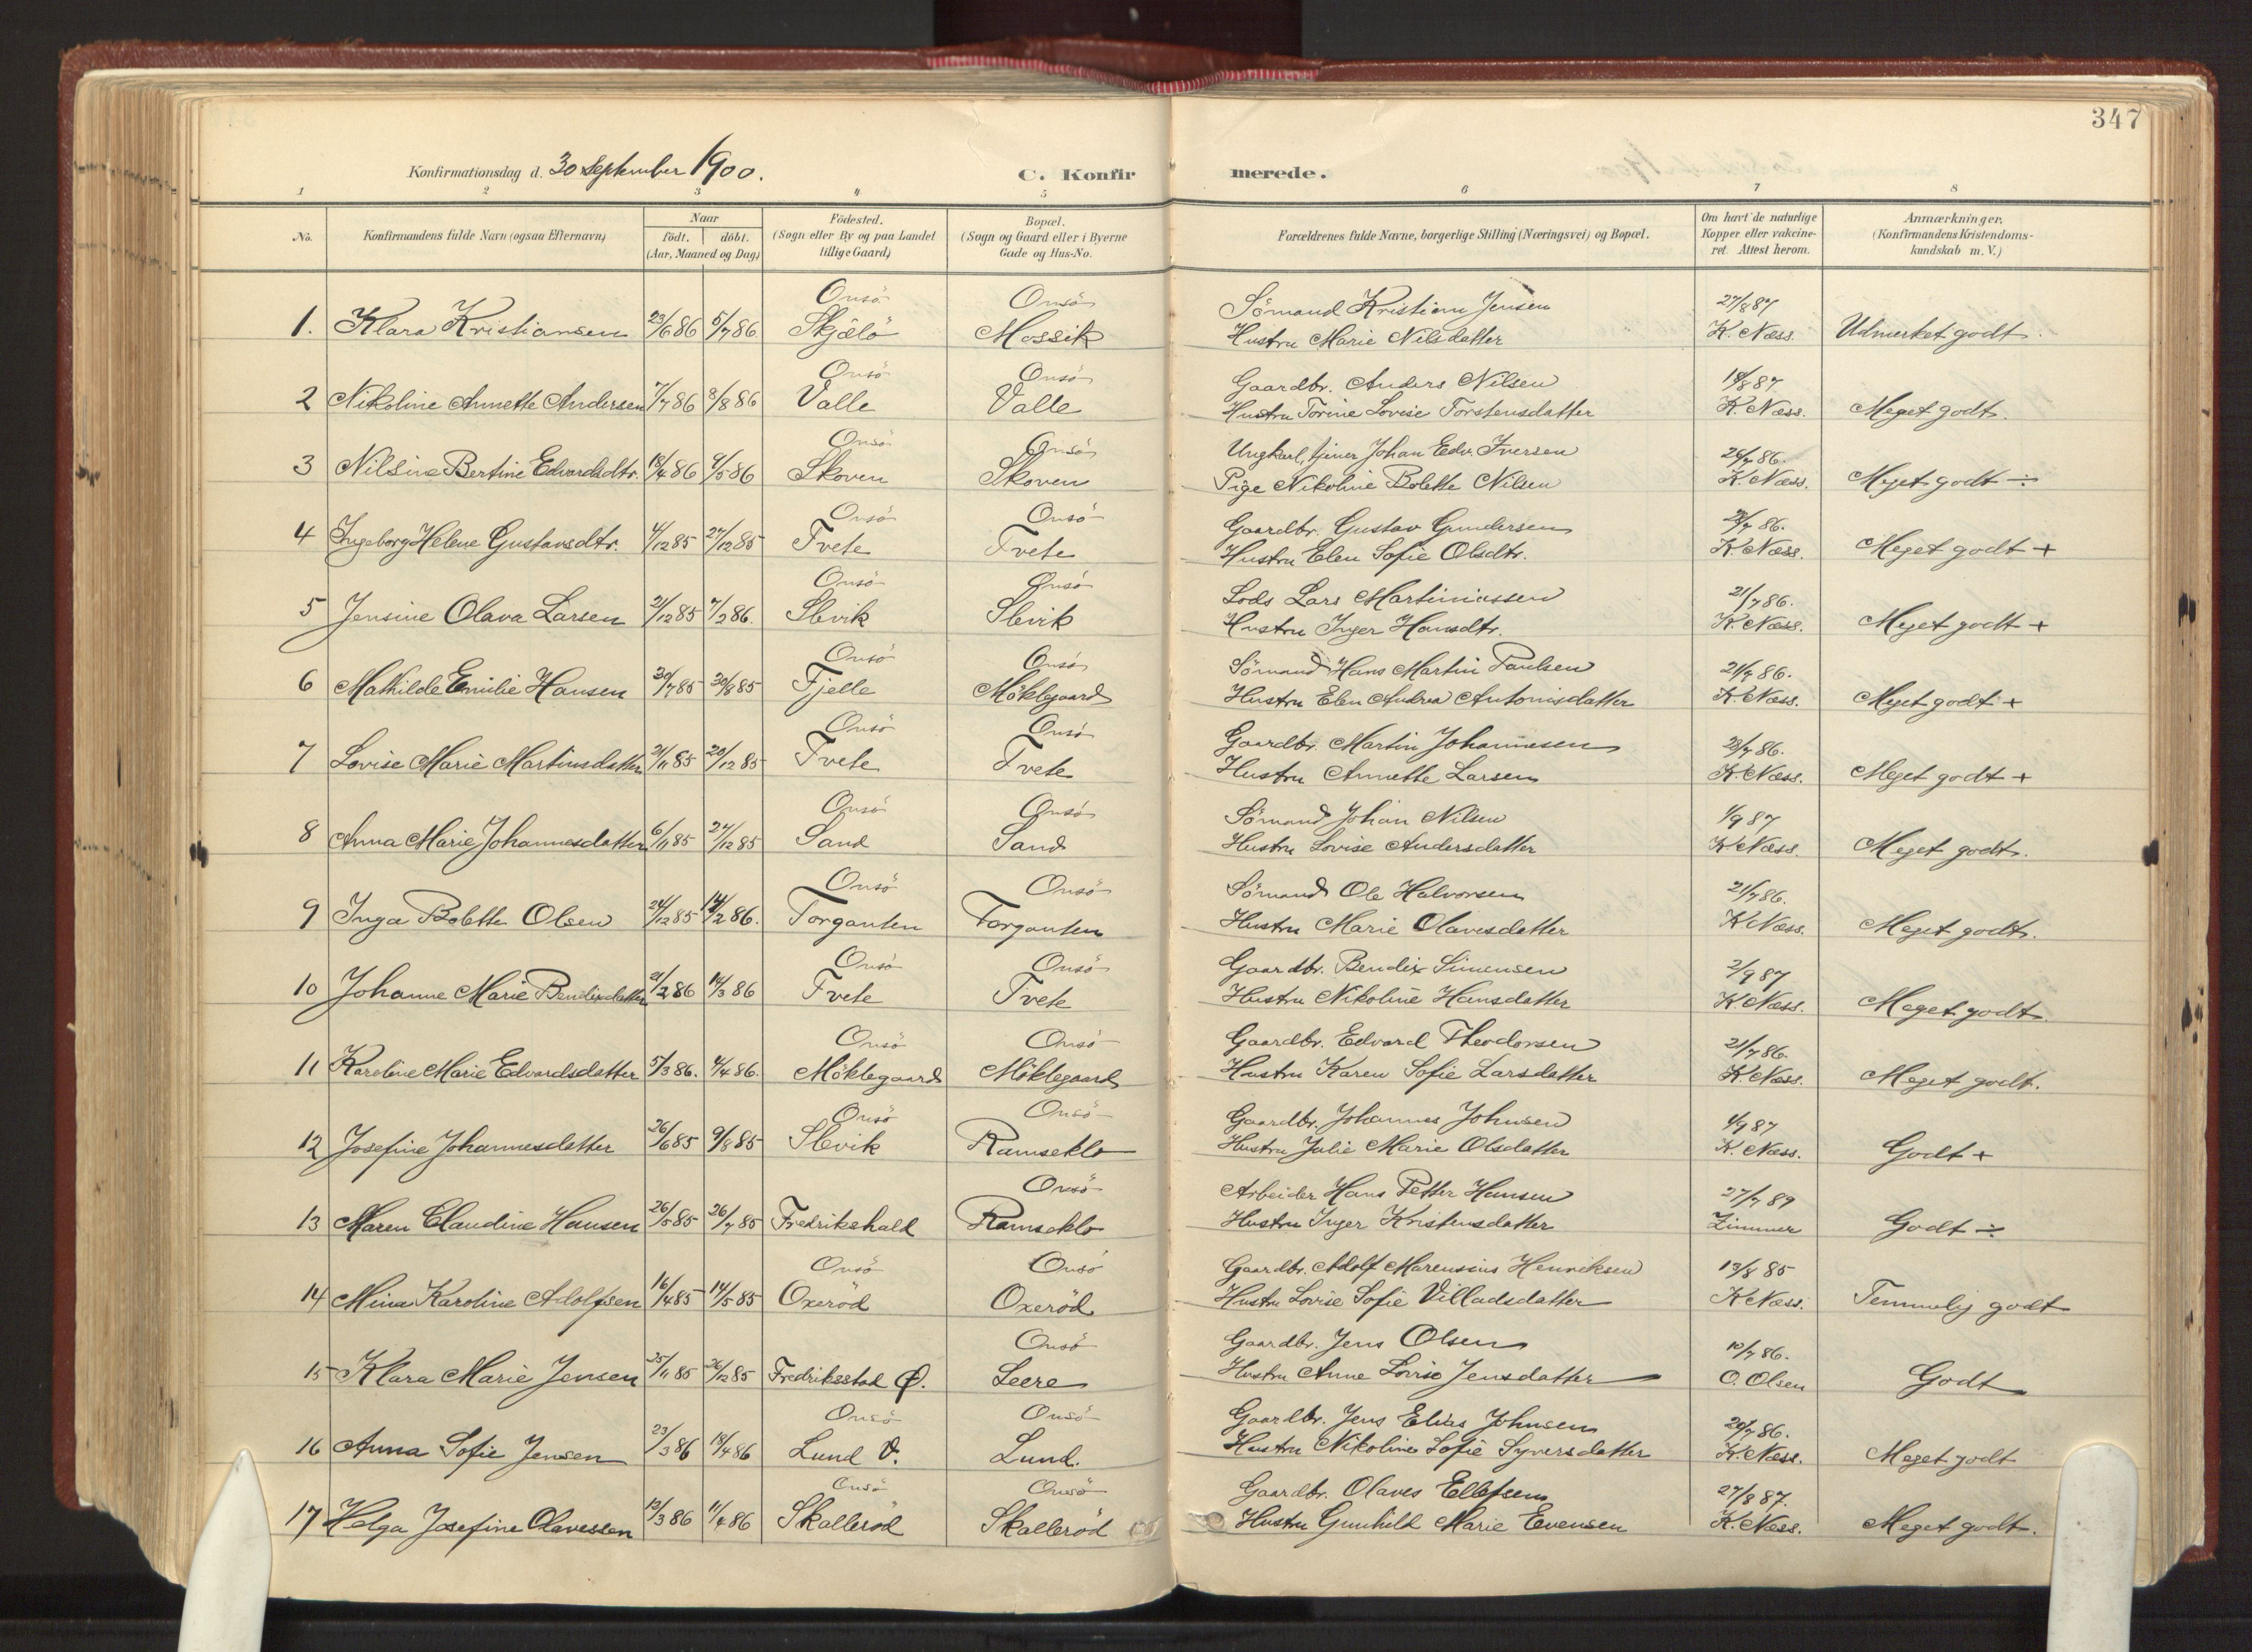 347
Konfirmationsdag d. 30 September 1900.
C. Konfirmerede.
1 2 3 4 5 6 7 8
No.
Konfirmandens fulde Navn (ogsaa Efternavn)
Naar
födt. döbt.
(Aar, Maaned og Dag)
Födested.
(Sogn eller By og paa Landet
tillige Gaard)
Bopæl.
(Sogn og Gaard eller i Byerne
Gade og Hus-No.
Forældrenes fulde Navne, borgerlige Stilling (Næringsvei) og Bopæl.
Om havt de naturlige
Kopper eller vakcine-
ret. Attest herom.
Anmærkninger.
(Konfirmandens Kristendoms-
kundskab m. V.)
Onsö Onsö Sömand Kristian Jensen 27/8 87
1. Klara Kristiansen 23/6 86 5/7 86 Skjælö Mossik Hustru Marie Nilsdatter K. Næss. Udmerket godt.
Onsö Onsö Gaardbr. Anders Nilsen 18/8 87
2 Nikoline Annette Andersen 7/7 86 8/8 86 Valle Valle Hustru Torine Lovise Torstensdatter K. Næss. Meget godt.
Onsö Onsö Ungkarl, tjener Johan Edv. Iversen 26/7 86.
3 Nilsine Bertine Edvardsdtr. 18/4 86 9/5 86 Skoven Skoven Pige Nikoline Bolette Nilsen K. Næss. Meget godt ÷
Onsö Onsö Gaardbr. Gustav Gundersen /7 86.
4 Ingeborg Helene Gustavsdtr. 4/12 85 27/12 85 Tvete Tvete Hustru Elen Sofie Olsdtr. K. Næss. Meget godt +
Onsö Onsö Lods Lars Martiniussen 21/7 86.
5 Jensine Olava Larsen 21/12 85 7/2 86. Slevik Slevik Hustru Inger Hansdtr. K. Næss. Meget godt +
Onsö Onsö Sömand Hans Martin Paulsen 21/7 86.
6 Mathilde Emilie Hansen 30/7 85 30/8 85 Fjelle Möklegaard Hustru Elen Andrea Antonisdatter K. Næss. Meget godt +
Onsö Onsö Gaardbr. Martin Johannesen 28/7 86.
7 Lovise Marie Martinsdatter 21/11 85 20/12 85 Tvete Tvete Hustru Annette Larsen K. Næss. Meget godt +
Onsö Onsö Sömand Johan Nilsen 1/9 87
8 Anna Marie Johannesdatter 6/11 85 27/12 85 Sand Sand Hustru Lovise Andersdatter K. Næss. Meget godt.
Onsö Onsö Sömand Ole Halvorsen 21/7 86.
9 Inga Bolette Olsen 24/12 85 14/2 86. Torgauten Torgauten Hustru Marie Olavesdatter K. Næss. Meget godt.
Onsö Onsö Gaardbr. Bendix Simensen 2/9 87
10 Johanne Marie Bendixdatter 21/2 86 14/3 86 Tvete Tvete Hustru Nikoline Hansdatter K. Næss. Meget godt.
Onsö Onsö Gaardbr. Edvard Theodorsen 21/7 86.
11 Karoline Marie Edvardsdatter 5/3 86. 4/4 86. Möklegaard Möklegaard Hustru Karen Sofie Larsdatter K. Næss. Meget godt.
Onsö Onsö Gaardbr. Johannes Johnsen /9 87
12 Josefine Johannesdatter 26/6 85 9/8 85 Slevik Ramseklo Hustru Julie Marie Olsdatter K. Næss. Godt +
Onsö Arbeider Hans Petter Hansen 27/7 89
13 Maren Claudine Hansen 26/5 85 26/7 85 Fredrikshald Ramseklo Hustru Inger Kristensdatter Zimmer Godt ÷
Onsö Onsö Gaardbr. Adolf Marensius Henriksen 13/8 85
14 Mina Karoline Adolfsen 16/4 85 14/5 85 Oxeröd Oxeröd Hustru Lovise Sofie Villadsdatter K. Næss. Temmelig godt
Onsö Gaardbr. Jens Olsen 10/7 86.
15 Klara Marie Jensen 25/11 85 26/12 85 Fredriksstad Ø. Leere Hustru Anne Lovise Jensdatter O. Olsen Godt
Onsö Onsö Gaardbr. Jens Elias Johnsen 20/7 86.
16 Anna Sofie Jensen 23/3 86 18/4 86 Lund V. Lund. Hustru Nikoline Sofie Syversdatter K. Næss. Meget godt
Onsö Onsö Gaardbr. Olaves Ellefsen 27/8 87.
17 Helga Josefine Olavessen 13/3 86 11/4 86 Skalleröd Skalleröd Hustru Gunhild Marie Evensen K. Næss. Meget godt.